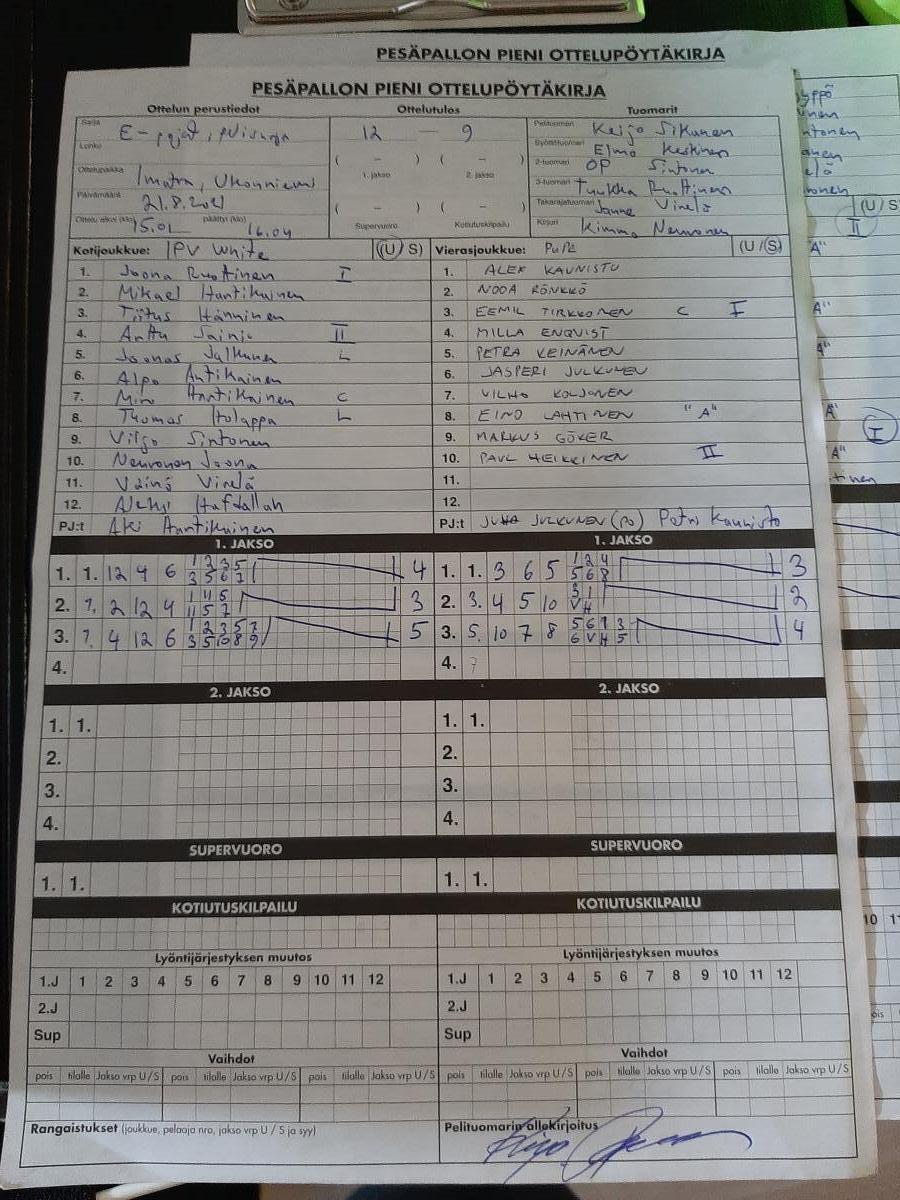 PESÄPALLON PIENI OTTELUPÖYTÄKIRJA
PESÄPALLON PIENI OTTELUPÖYTÄKIRJA
Ottelun perustiedot Ottelutulos Tuomarit
Sarja E-pojat,
Lohko
12 — 9
Pelituomari Keijo Sikunen
Syöttötuomari Elmo Keskinen
2-tuomari OP Sintonen
3-tuomari Tuukka Ruottinen
Takarajatuomari Janne Virelä
Kirjuri Kimmo Neuvonen
( – ) ( – )
1. jakso 2. jakso
( – ) ( – )
Supervuoro Kotiutuskilpailu
Ottelupaikka Imatra, Ukonniemi
Päivämäärä 21.8.2021
Ottelu alkoi (klo) 15.01 päättyi (klo) 16.04
Kotijoukkue: IPV White (U/S)
1. Joona Ruottinen I
2. Mikael Hantikainen
3. Tiitus Hänninen
4. Anttu Sainio II
5. Joonas Jalkunen L
6. Alpo Antikainen
7. Miro Hantikainen C
8. Thomas Holappa L
9. Viljo Sintonen
10. Neuvonen Joona
11. Väinö Virelä
12. Aleksi Hafdallah
PJ:t Aki Hantikainen
Vierasjoukkue: PuPe (U/S)
1. ALEX KAUNISTO
2. NOOA RÖNKKÖ
3. EEMIL TIRKKONEN C I
4. MILLA ENQVIST
5. PETRA KEINÄNEN
6. JASPERI JULKUNEN
7. VILHO KOLJONEN
8. EINO LAHTINEN "A"
9. MARKUS GÖKER
10. PAUL HEIKKINEN II
11.
12.
PJ:t JUHO JULKUNEN (PO) Petri Kaunisto
1. JAKSO 1. JAKSO
1. 1. 12 4 6 1 2 3 5 4
3 5 6 7
2. 7. 2 12 4 1 4 5 3
11 5 7
3. 7. 4 12 6 1 2 3 5 7 5
3 5 10 8 9
4.
1. 1. 3 6 5 1 2 4 3
5 6 8
2. 3. 4 5 10 3 1 2
V H
3. 5. 10 7 8 5 6 1 3 4
6 V H 5
4. 7
2. JAKSO 2. JAKSO
1. 1. 1. 1.
2. 2.
3. 3.
4. 4.
SUPERVUORO SUPERVUORO
1. 1. 1. 1.
KOTIUTUSKILPAILU KOTIUTUSKILPAILU
Lyöntijärjestyksen muutos Lyöntijärjestyksen muutos
1.J 1 2 3 4 5 6 7 8 9 10 11 12 1.J 1 2 3 4 5 6 7 8 9 10 11 12
2.J 2.J
Sup Sup
Vaihdot Vaihdot
pois tilalle Jakso vrp U/S pois tilalle Jakso vrp U/S pois tilalle Jakso vrp U/S pois tilalle Jakso vrp U/S pois tilalle Jakso vrp U/S pois tilalle Jakso vrp U/S
Rangaistukset (joukkue, pelaaja nro, jakso vrp U / S ja syy) Pelituomarin allekirjoitus